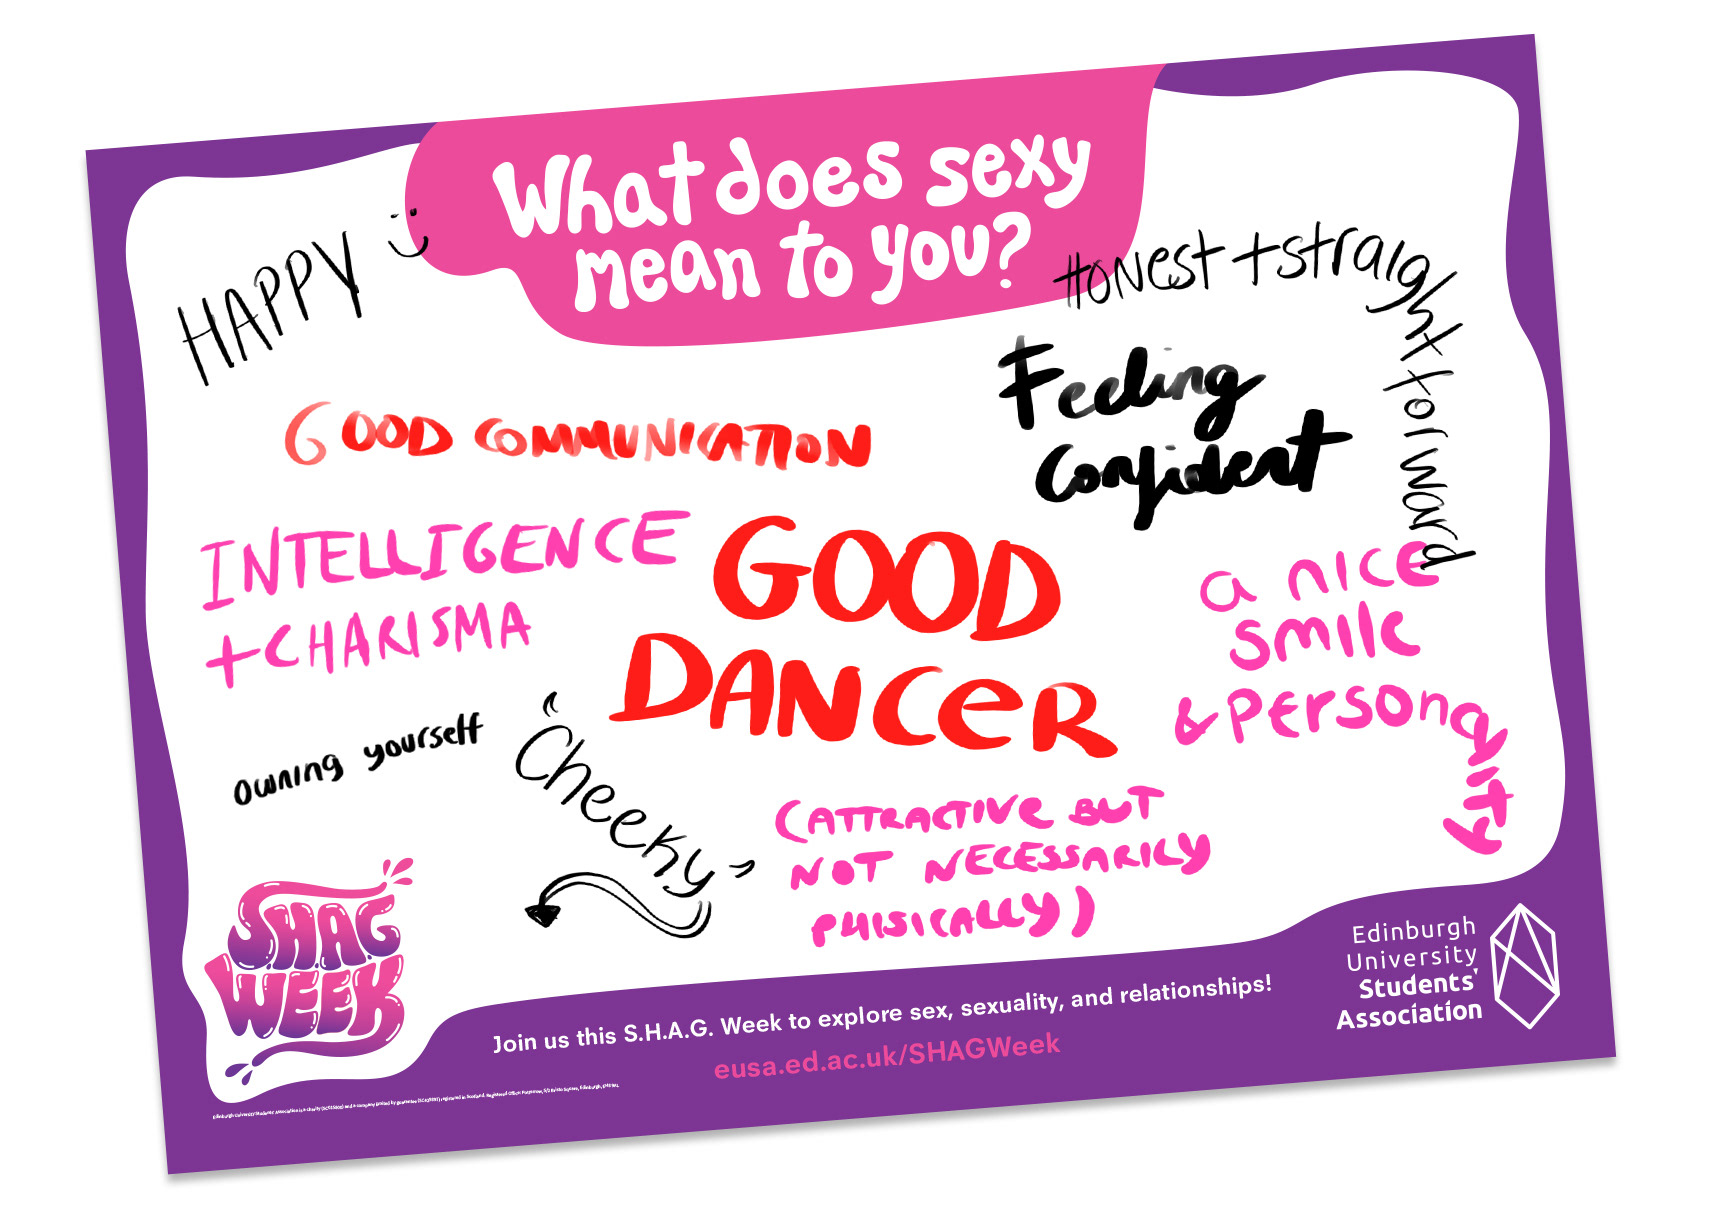 What does sexy
mean to you?
HAPPY :)
HONEST + straight forward
Feeling
Confident
GOOD COMMUNICATION
INTELLIGENCE
+ CHARISMA
GOOD
DANCER
a nice
smile
& personality
owning yourself
"Cheeky"
(ATTRACTIVE BUT
NOT NECESSARILY
PHISICALLY)
S.H.A.G.
WEEK
Join us this S.H.A.G. Week to explore sex, sexuality, and relationships!
eusa.ed.ac.uk/SHAGWeek
Edinburgh
University
Students'
Association